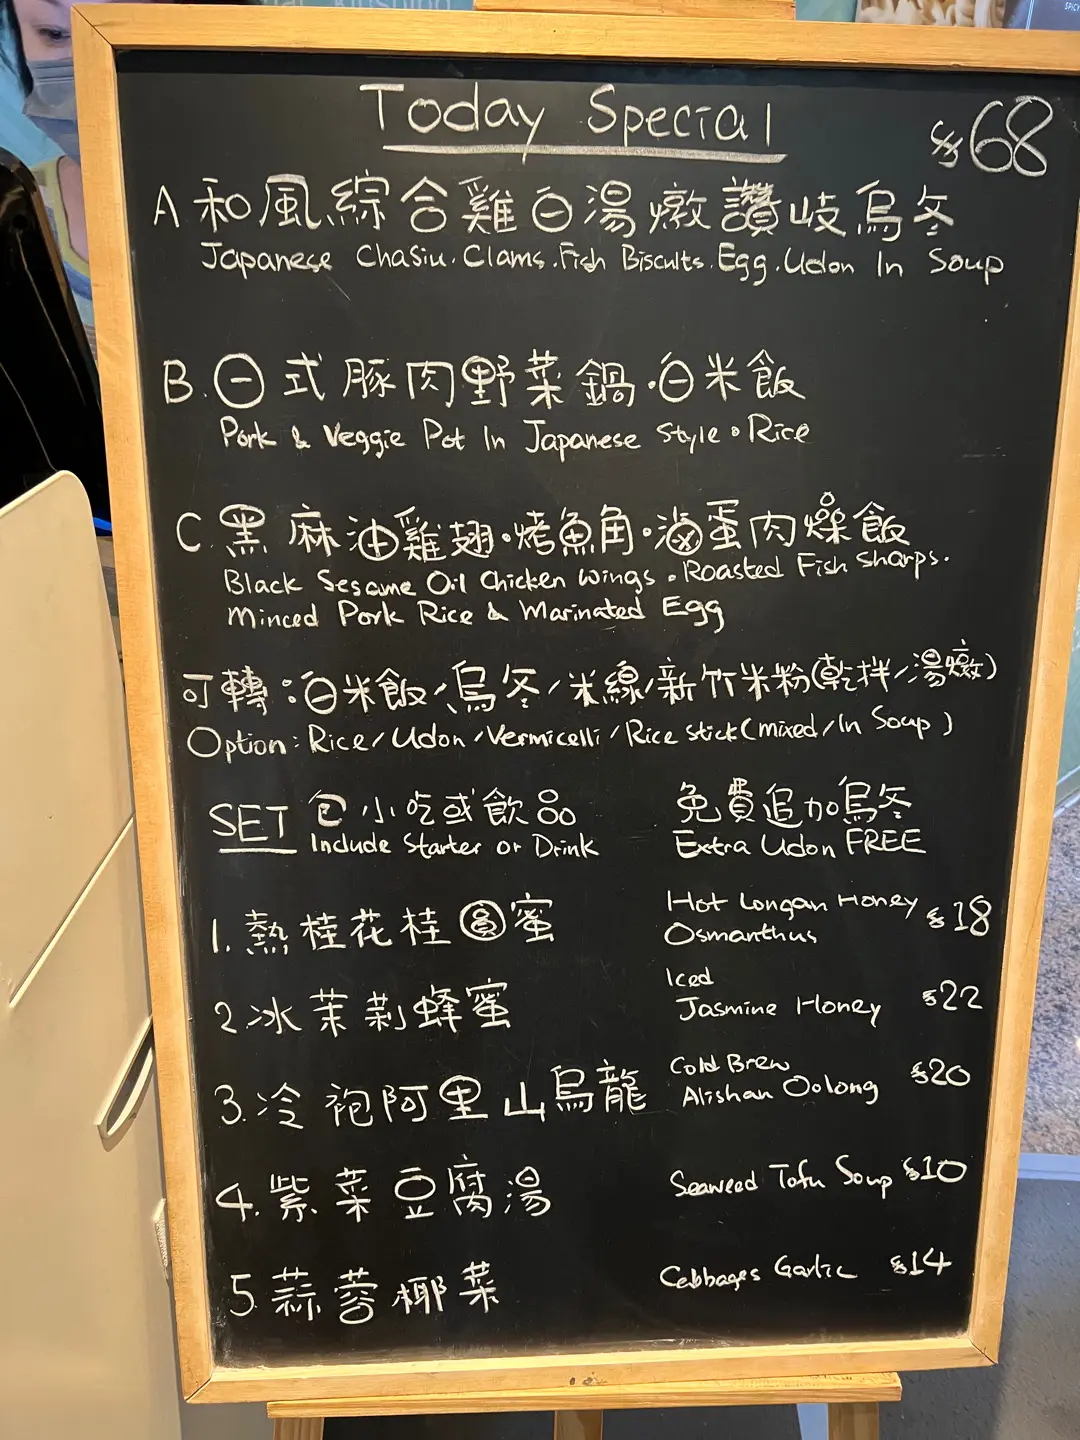 Today Special
$68
A 和風綜合雞白湯燉讚岐烏冬
Japanese Chasiu. Clams. Fish Biscuits. Egg. Udon In Soup
B. 日式豚肉野菜鍋·白米飯
Pork & Veggie Pot In Japanese Style • Rice
C. 黑麻油雞翅·烤魚角·滷蛋肉燥飯
Black Sesame Oil Chicken Wings • Roasted Fish Sharps.
Minced Pork Rice & Marinated Egg
可轉:白米飯/烏冬/米線/新竹米粉(乾拌/湯燉)
Option: Rice/Udon/Vermicelli/Rice stick(mixed/In Soup)
SET 包小吃或飲品
Include Starter or Drink
免費追加烏冬
Extra Udon FREE
1. 熱桂花桂圓蜜
Hot Longan Honey $18
Osmanthus
2 冰茉莉蜂蜜
Iced
Jasmine Honey $22
3. 冷袍阿里山烏龍
Cold Brew $20
Alishan Oolong
4. 紫菜豆腐湯
Seaweed Tofu Soup $10
5. 蒜蓉椰菜
Cebbages Garlic $14